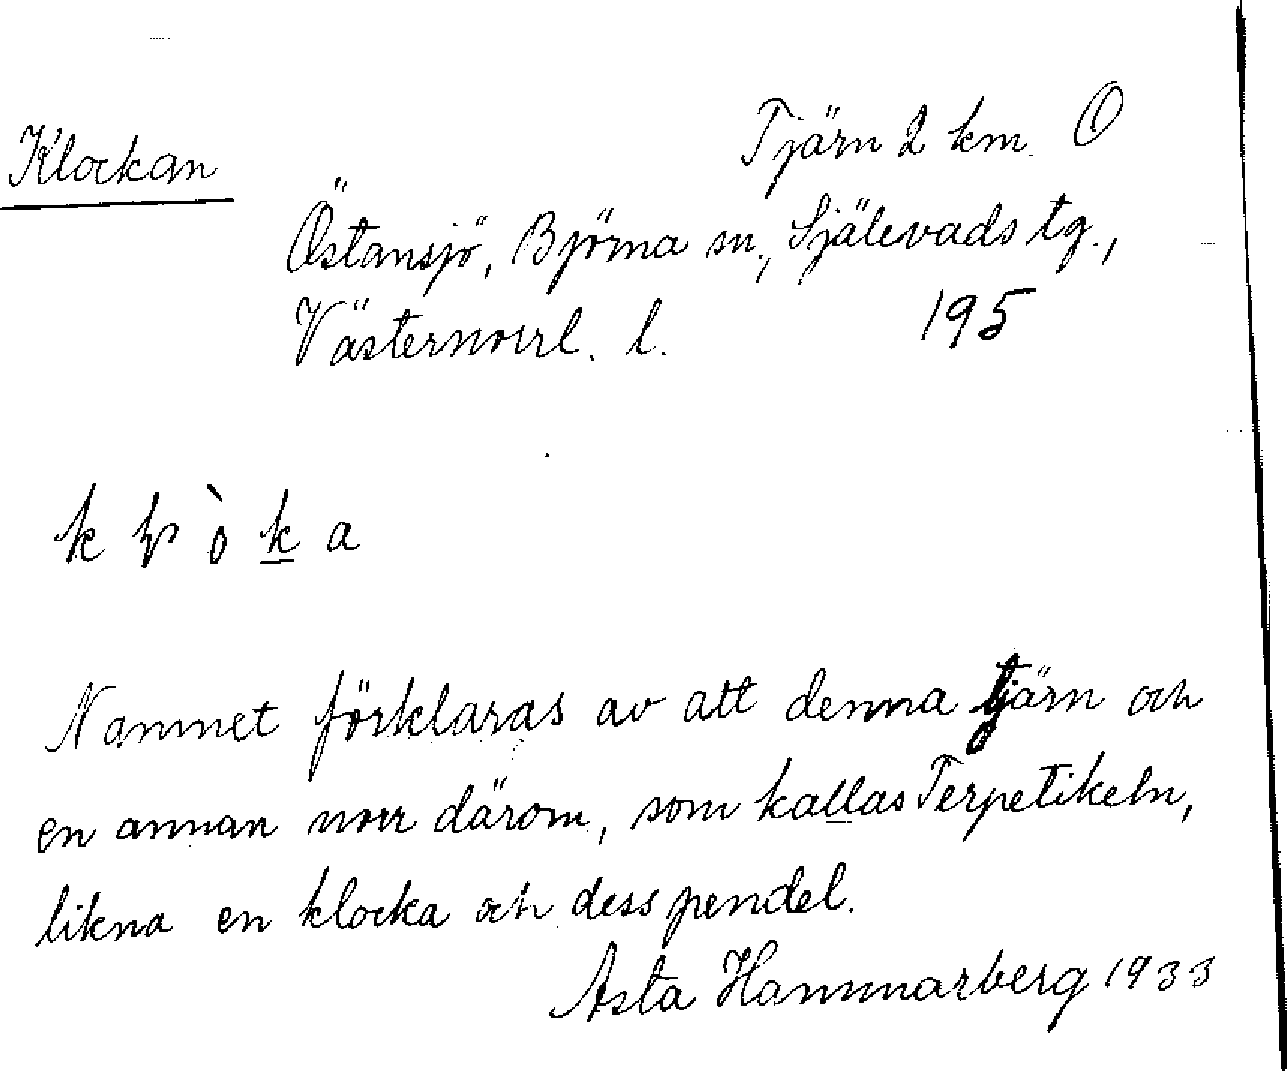 Klockan
Tjärn 2 km O
Östansjö, Björna sn., Själevads tg.,
Västernorrl. l. 195
Namnet förklaras av att denna tjärn och
en annan norr därom, som kallas Terpetikeln,
likna en klocka och dess pendel.
Asta Hammarberg 1933